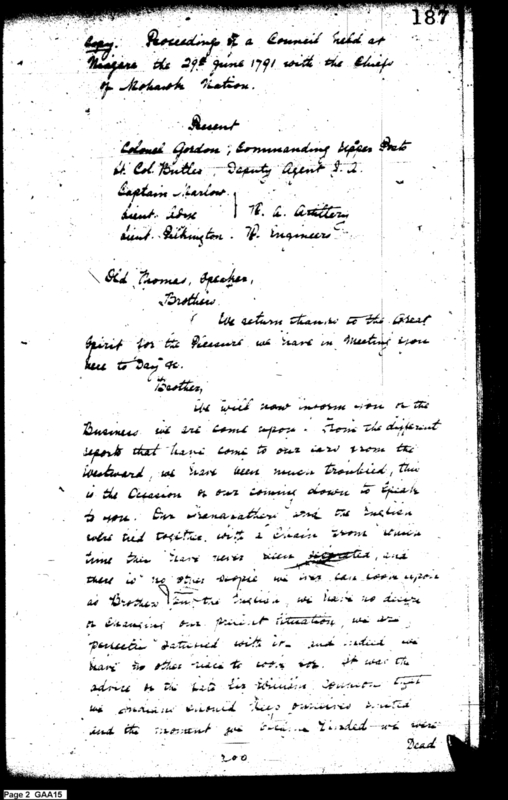 187
Copy. Proceedings of a Council held at
Niagara the 29th June 1791 with the Chiefs
of Mohawk Nation.
Present
Colonel Gordon, Commanding Upper Posts
Lt. Col. Butler, Deputy Agent I. A.
Captain Marlow
Lieut. R. A. Artillery
Lieut. Pilkington. R. Engineers
Old Thomas, Speaker,
Brothers
We return thanks to the Great
Spirit for the Pleasure we have in Meeting you
here to Day &c.
Brother,
We will now inform you of the
Business we are come upon. From the different
reports that have come to our ears from the
Westward, we have been much troubled, this
is the Occasion of our coming down to Speak
to you. Our Grandfathers and the English
were tied together with a Chain from which
time they have never been separated, and
there is no other people we can look upon
as Brother but the English, we have no desire
of changing our present situation, we are
perfectly satisfied with it and indeed we
have no other place to look for. It was the
advice of the late Sir William Johnson that
we Indians should keep ourselves united
and the moment we became divided we were
Dead
200
Page 2 GAA15